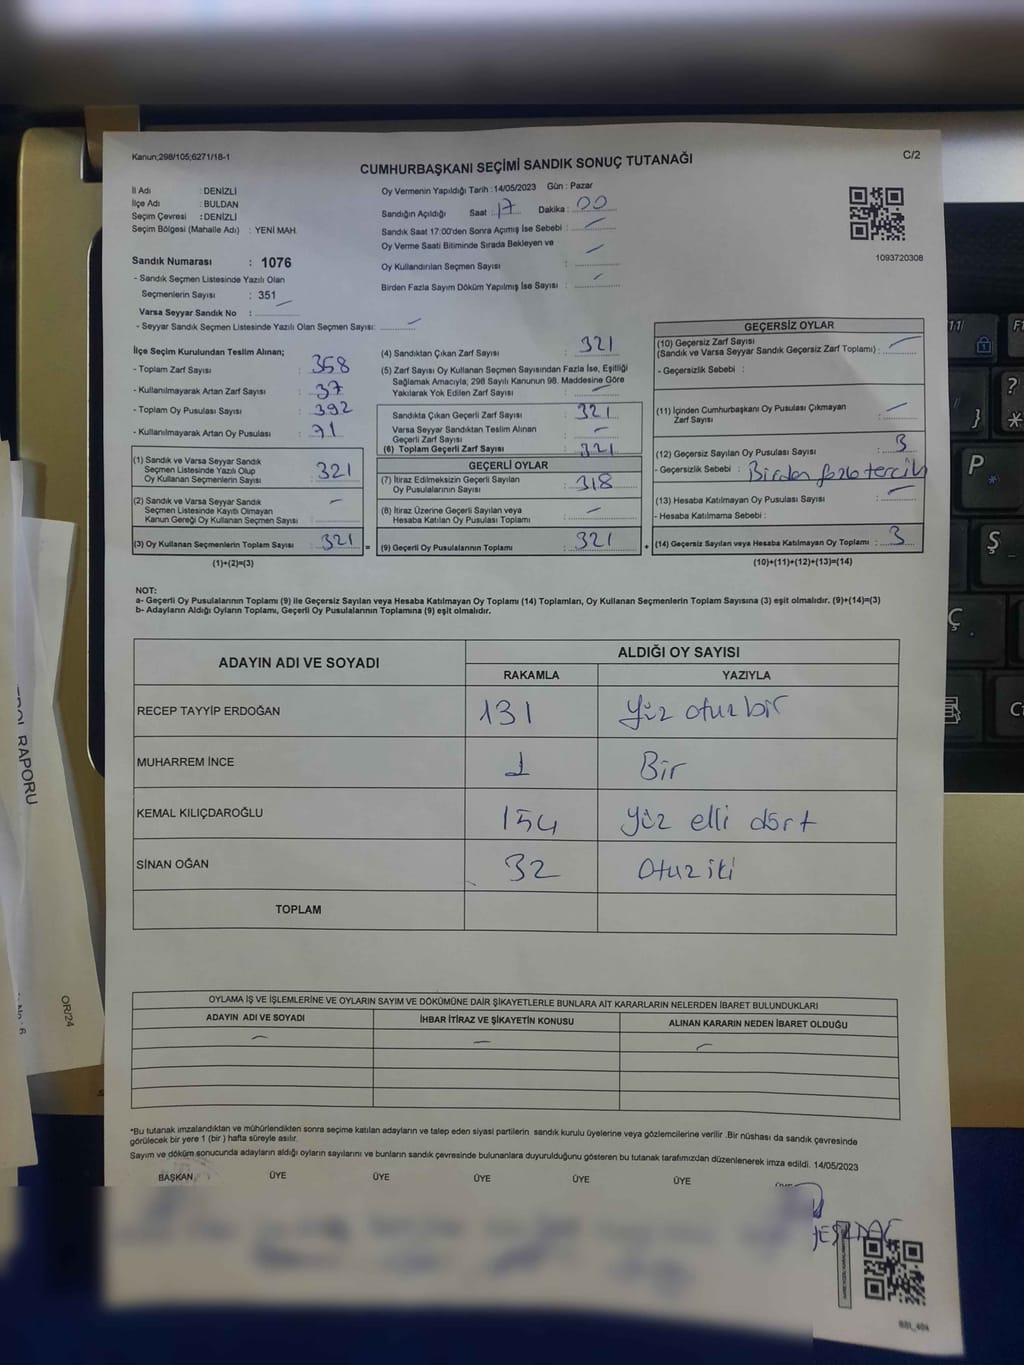 Kanun;298/105;6271/18-1
CUMHURBAŞKANI SEÇİMİ SANDIK SONUÇ TUTANAĞI
C/2
İl Adı : DENİZLİ
İlçe Adı : BULDAN
Seçim Çevresi : DENİZLİ
Seçim Bölgesi (Mahalle Adı) : YENİ MAH.
Oy Vermenin Yapıldığı Tarih :14/05/2023 Gün : Pazar
Sandığın Açıldığı Saat : 17 Dakika : 00
Sandık Saat 17:00'den Sonra Açılmış İse Sebebi : -
Oy Verme Saati Bitiminde Sırada Bekleyen ve
Oy Kullandırılan Seçmen Sayısı : -
Birden Fazla Sayım Döküm Yapılmış İse Sayısı : -
1093720308
Sandık Numarası : 1076
- Sandık Seçmen Listesinde Yazılı Olan
Seçmenlerin Sayısı : 351
Varsa Seyyar Sandık No : -
- Seyyar Sandık Seçmen Listesinde Yazılı Olan Seçmen Sayısı: -
İlçe Seçim Kurulundan Teslim Alınan;
- Toplam Zarf Sayısı : 358
- Kullanılmayarak Artan Zarf Sayısı : 37
- Toplam Oy Pusulası Sayısı : 392
- Kullanılmayarak Artan Oy Pusulası : 71
(1) Sandık ve Varsa Seyyar Sandık
Seçmen Listesinde Yazılı Olup
Oy Kullanan Seçmenlerin Sayısı : 321
(2) Sandık ve Varsa Seyyar Sandık
Seçmen Listesinde Kayıtlı Olmayan
Kanun Gereği Oy Kullanan Seçmen Sayısı : -
(3) Oy Kullanan Seçmenlerin Toplam Sayısı : 321
(1)+(2)=(3)
(4) Sandıktan Çıkan Zarf Sayısı : 321
(5) Zarf Sayısı Oy Kullanan Seçmen Sayısından Fazla İse, Eşitliği
Sağlamak Amacıyla; 298 Sayılı Kanunun 98. Maddesine Göre
Yakılarak Yok Edilen Zarf Sayısı : -
Sandıkta Çıkan Geçerli Zarf Sayısı : 321
Varsa Seyyar Sandıktan Teslim Alınan
Geçerli Zarf Sayısı : -
(6) Toplam Geçerli Zarf Sayısı : 321
GEÇERLİ OYLAR
(7) İtiraz Edilmeksizin Geçerli Sayılan
Oy Pusulalarının Sayısı : 318
(8) İtiraz Üzerine Geçerli Sayılan veya
Hesaba Katılan Oy Pusulası Toplamı : -
= (9) Geçerli Oy Pusulalarının Toplamı : 321
GEÇERSİZ OYLAR
(10) Geçersiz Zarf Sayısı
(Sandık ve Varsa Seyyar Sandık Geçersiz Zarf Toplamı) : -
- Geçersizlik Sebebi :
(11) İçinden Cumhurbaşkanı Oy Pusulası Çıkmayan
Zarf Sayısı : -
(12) Geçersiz Sayılan Oy Pusulası Sayısı : 3
- Geçersizlik Sebebi : Birden fazla tercih
(13) Hesaba Katılmayan Oy Pusulası Sayısı : -
- Hesaba Katılmama Sebebi :
+ (14) Geçersiz Sayılan veya Hesaba Katılmayan Oy Toplamı : 3
(10)+(11)+(12)+(13)=(14)
NOT:
a- Geçerli Oy Pusulalarının Toplamı (9) ile Geçersiz Sayılan veya Hesaba Katılmayan Oy Toplamı (14) Toplamları, Oy Kullanan Seçmenlerin Toplam Sayısına (3) eşit olmalıdır. (9)+(14)=(3)
b- Adayların Aldığı Oyların Toplamı, Geçerli Oy Pusulalarının Toplamına (9) eşit olmalıdır.
ADAYIN ADI VE SOYADI ALDIĞI OY SAYISI
RAKAMLA YAZIYLA
RECEP TAYYİP ERDOĞAN 131 Yüz otuz bir
MUHARREM İNCE 1 Bir
KEMAL KILIÇDAROĞLU 154 Yüz elli dört
SİNAN OĞAN 32 Otuz iki
TOPLAM
OYLAMA İŞ VE İŞLEMLERİNE VE OYLARIN SAYIM VE DÖKÜMÜNE DAİR ŞİKAYETLERLE BUNLARA AİT KARARLARIN NELERDEN İBARET BULUNDUKLARI
ADAYIN ADI VE SOYADI İHBAR İTİRAZ VE ŞİKAYETİN KONUSU ALINAN KARARIN NEDEN İBARET OLDUĞU
- - -
*Bu tutanak imzalandıktan ve mühürlendikten sonra seçime katılan adayların ve talep eden siyasi partilerin sandık kurulu üyelerine veya gözlemcilerine verilir .Bir nüshası da sandık çevresinde
görülecek bir yere 1 (bir ) hafta süreyle asılır.
Sayım ve döküm sonucunda adayların aldığı oyların sayılarını ve bunların sandık çevresinde bulunanlara duyurulduğunu gösteren bu tutanak tarafımızdan düzenlenerek imza edildi. 14/05/2023
BAŞKAN ÜYE ÜYE ÜYE ÜYE ÜYE
RAPORU
OR/24